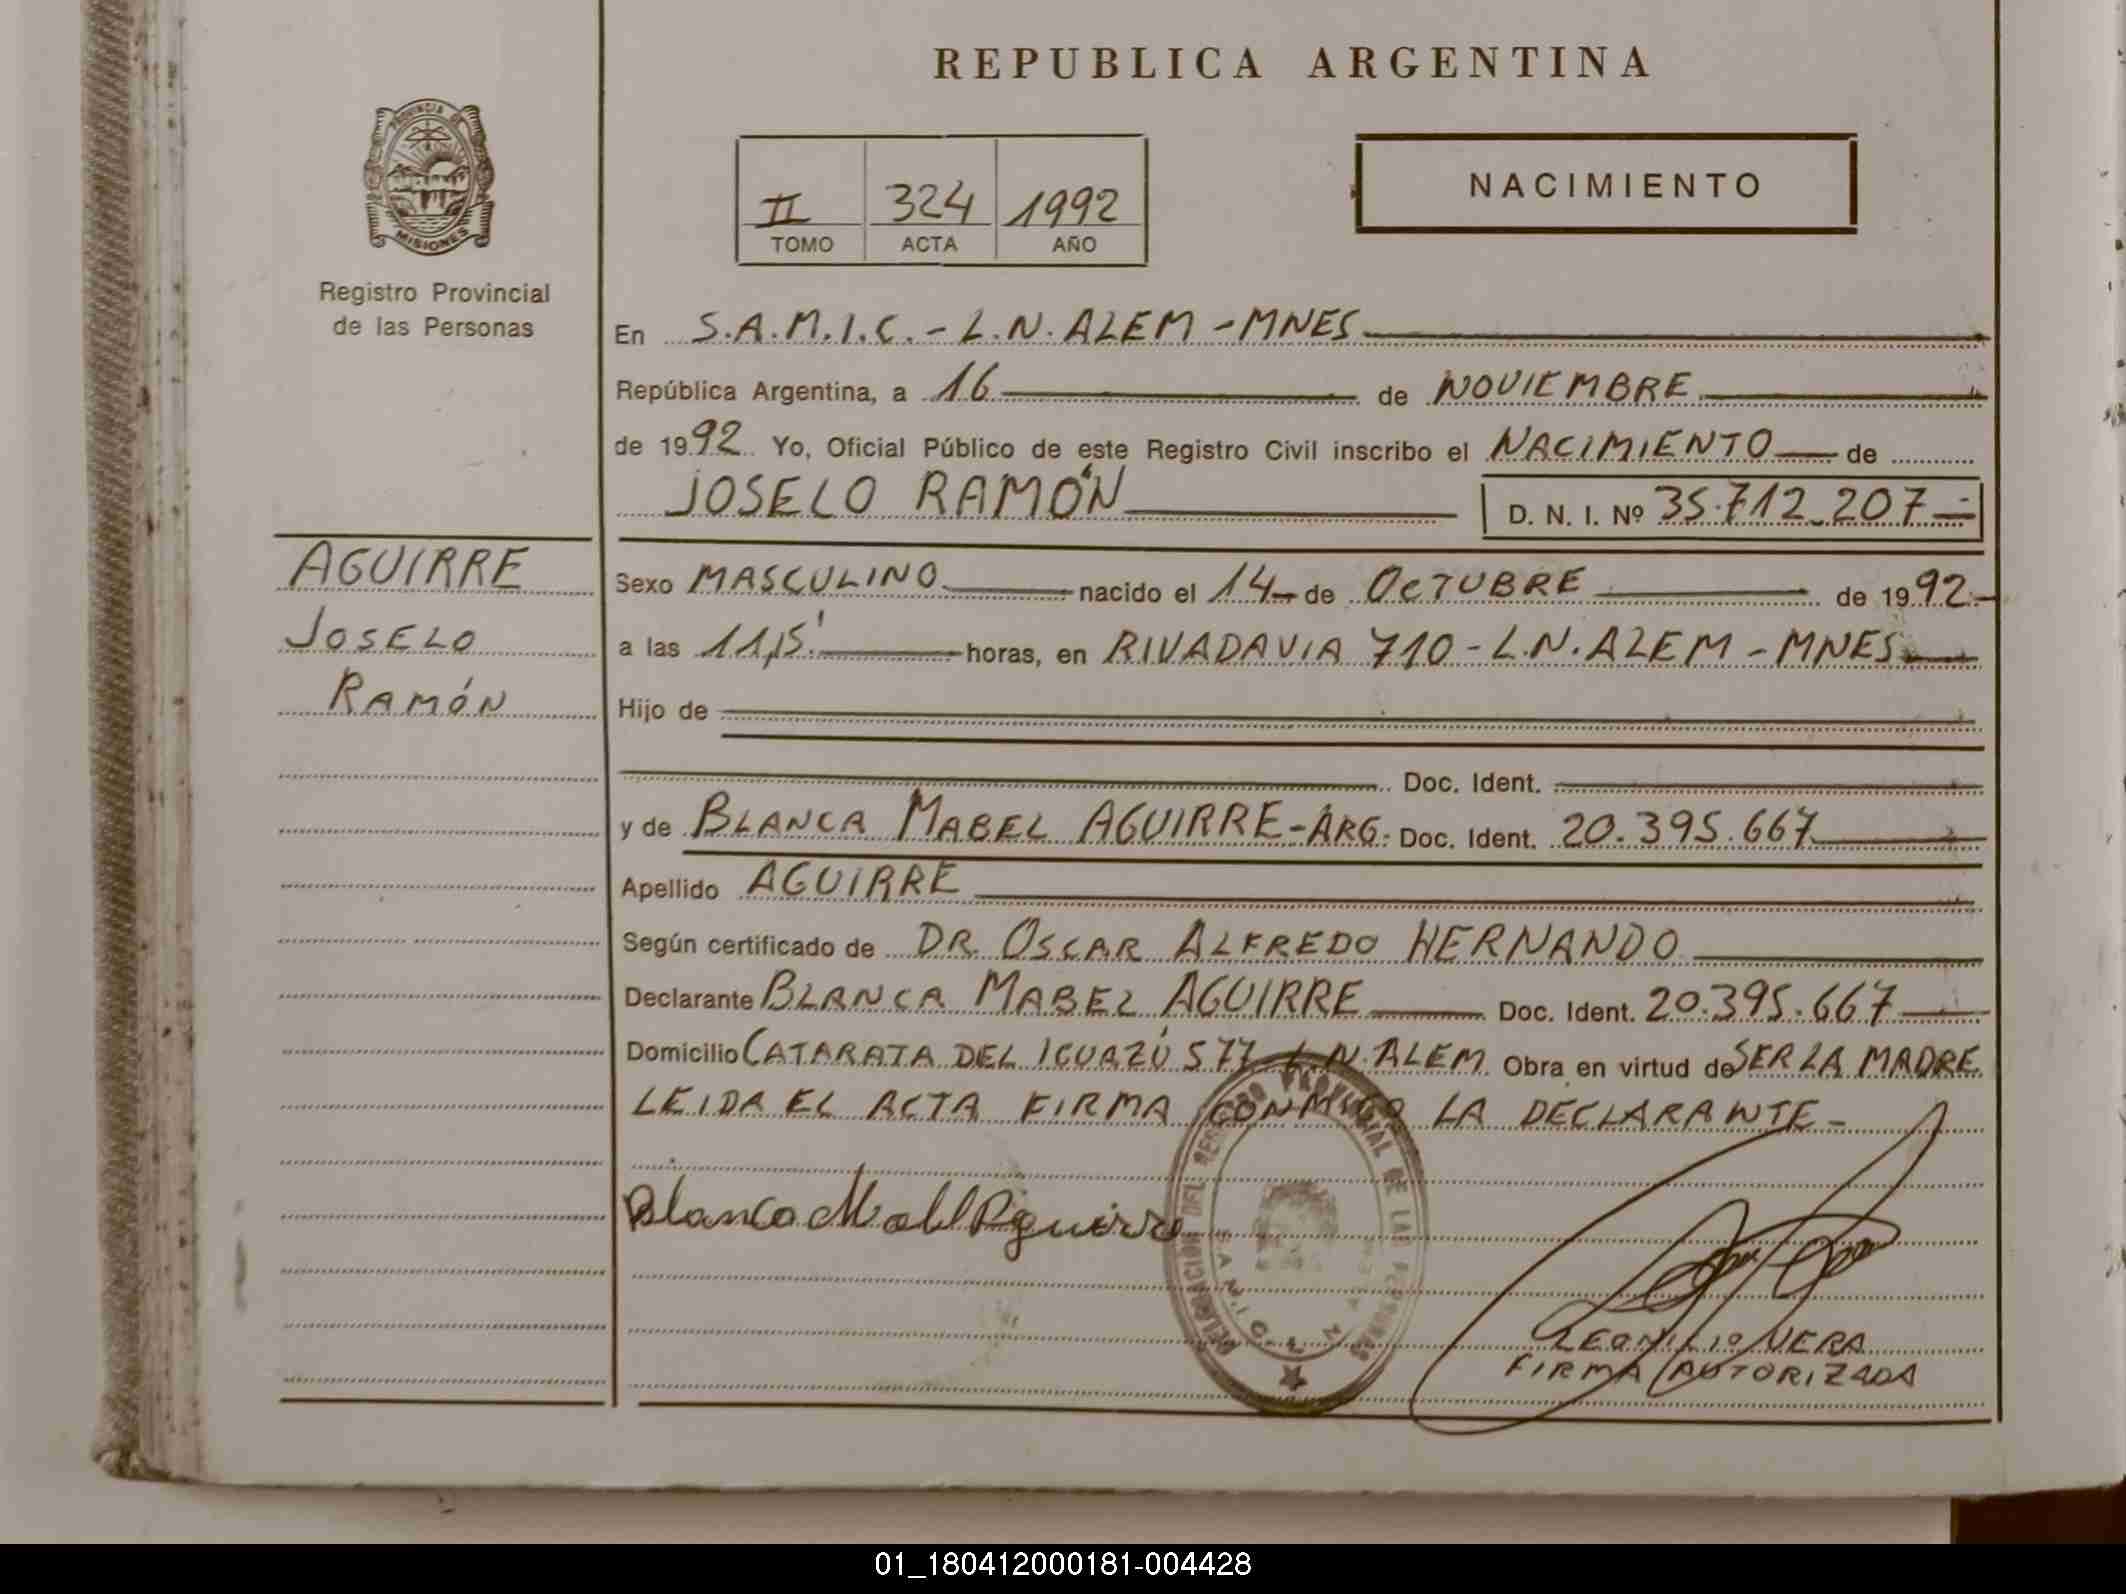 REPUBLICA ARGENTINA
PROVINCIA DE
MISIONES
Registro Provincial
de las Personas
II 324 1992
TOMO ACTA AÑO
NACIMIENTO
En S.A.M.I.C. - L.N. ALEM - MNES
República Argentina, a 16 de NOVIEMBRE
de 1992 Yo, Oficial Público de este Registro Civil inscribo el NACIMIENTO de
JOSELO RAMÓN D. N. I. Nº 35.712.207
AGUIRRE
JOSELO
RAMÓN
Sexo MASCULINO nacido el 14 de OCTUBRE de 1992
a las 11,15' horas, en RIVADAVIA 710 - L.N. ALEM - MNES
Hijo de
Doc. Ident.
y de BLANCA MABEL AGUIRRE - ARG. Doc. Ident. 20.395.667
Apellido AGUIRRE
Según certificado de DR. OSCAR ALFREDO HERNANDO
Declarante BLANCA MABEL AGUIRRE Doc. Ident. 20.395.667
Domicilio CATARATA DEL IGUAZÚ 577 L.N. ALEM Obra en virtud de SER LA MADRE
LEIDA EL ACTA FIRMA CONMIGO LA DECLARANTE -
DEL REGISTRO PROVINCIAL DE LAS PERSONAS
LEONILIO VERA
FIRMA AUTORIZADA
01_180412000181-004428